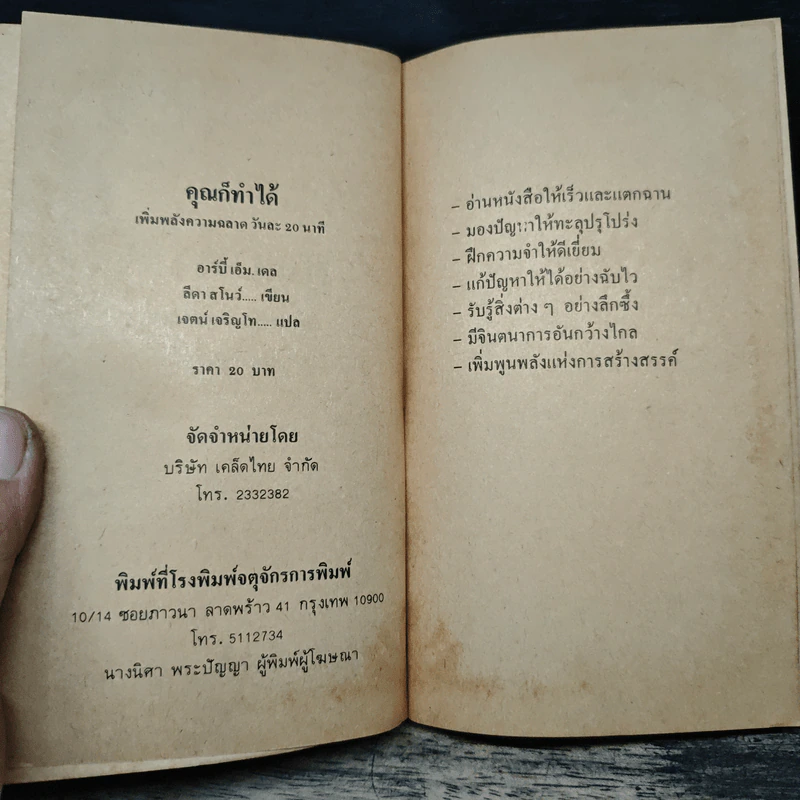 คุณก็ทำได้
เพิ่มพลังความฉลาด วันละ 20 นาที
อาร์บี้ เอ็ม. เดล
ลีดา สโนว์..... เขียน
เจตน์ เจริญโท..... แปล
ราคา 20 บาท
จัดจำหน่ายโดย
บริษัท เคล็ดไทย จำกัด
โทร. 2332382
พิมพ์ที่โรงพิมพ์จตุจักรการพิมพ์
10/14 ซอยภาวนา ลาดพร้าว 41 กรุงเทพ 10900
โทร. 5112734
นางนิศา พระปัญญา ผู้พิมพ์ผู้โฆษณา
– อ่านหนังสือให้เร็วและแตกฉาน
– มองปัญหาให้ทะลุปรุโปร่ง
– ฝึกความจำให้ดีเยี่ยม
– แก้ปัญหาให้ได้อย่างฉับไว
– รับรู้สิ่งต่าง ๆ อย่างลึกซึ้ง
– มีจินตนาการอันกว้างไกล
– เพิ่มพูนพลังแห่งการสร้างสรรค์